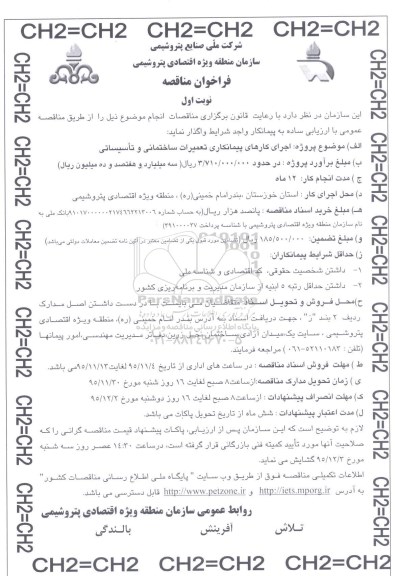 CH2=CH2 CH2=CH2 CH2=CH2
شرکت ملّی صنایع پتروشیمی
سازمان منطقه ویژه اقتصادی پتروشیمی
فراخوان مناقصه
نوبت اول
این سازمان در نظر دارد با رعایت قانون برگزاری مناقصات انجام موضوع ذیل را از طریق مناقصه
عمومی با ارزیابی ساده به پیمانکار واجد شرایط واگذار نماید:
الف) موضوع پروژه: اجرای کارهای پیمانکاری تعمیرات ساختمانی و تأسیساتی
ب) مبلغ برآورد پروژه : در حدود ۳/۷۱۰/۰۰۰/۰۰۰ ریال( سه میلیارد و هفتصد و ده میلیون ریال)
ج ) مدت انجام کار: ۱۲ ماه
د) محل اجرای کار : استان خوزستان ،بندرامام خمینی(ره) ، منطقه ویژه اقتصادی پتروشیمی
هـ) مبلغ خرید اسناد مناقصه : پانصد هزار ریال(به حساب شماره
نام سازمان منطقه ویژه اقتصادی پتروشیمی با شناسه پرداخت
و) مبلغ تضمین: ۱۸۵/۵۰۰/۰۰۰ ریال
ز) حداقل شرایط پیمانکاران:
۱- داشتن شخصیت حقوقی، کد اقتصادی و شناسه ملی
۲- داشتن حداقل رتبه ۵ ابنیه از سازمان مدیریت و برنامه‌ریزی کشور
ح)محل فروش و تحویل اسناد: در دست داشتن اصل مدارک
ردیف ۲ بند "ز"، جهت دریافت اسناد به آدرس بندر امام خمینی (ره)، منطقه ویژه اقتصادی
پتروشیمی ، سایت یک، مدیریت مهندسی، امور پیمانها
(تلفن : ۵۲۱۱۰۱۸۳-۰۶۱) مراجعه فرمایند.
ط ) مهلت فروش اسناد مناقصه : در ساعت های اداری از تاریخ ۹۵/۱۱/۴ لغایت ۹۵/۱۱/۱۳می باشد.
ی ) زمان تحویل مدارک مناقصه:ازساعت۸ صبح لغایت ۱۶ روز شنبه مورخ ۹۵/۱۱/۳۰
ک) مهلت انصراف پیشنهادات : ازساعت۸ صبح لغایت ۱۶ روز دوشنبه مورخ ۹۵/۱۲/۲
ل) مدت اعتبار پیشنهادات : شش ماه از تاریخ تحویل پاکات می باشد.
لازم به توضیح است که این سازمان پس از ارزیابی، پاکات پیشنهاد قیمت مناقصه گرانی را که
صلاحیت آنها مورد تأیید کمیته فنی بازرگانی قرار گرفته است، درساعت ۱۴:۳۰ عصر روز سه شنبه
مورخ ۹۵/۱۲/۳ گشایش می نماید.
اطلاعات تکمیلی مناقصه فوق از طریق وب سایت " پایگاه ملی اطلاع رسانی مناقصات کشور"
به آدرس http://iets.mporg.ir و http://www.petzone.ir قابل دسترسی می باشد.
روابط عمومی سازمان منطقه ویژه اقتصادی پتروشیمی
تـلاش آفرینش بالـنـدگی
CH2=CH2 CH2=CH2 CH2=CH2